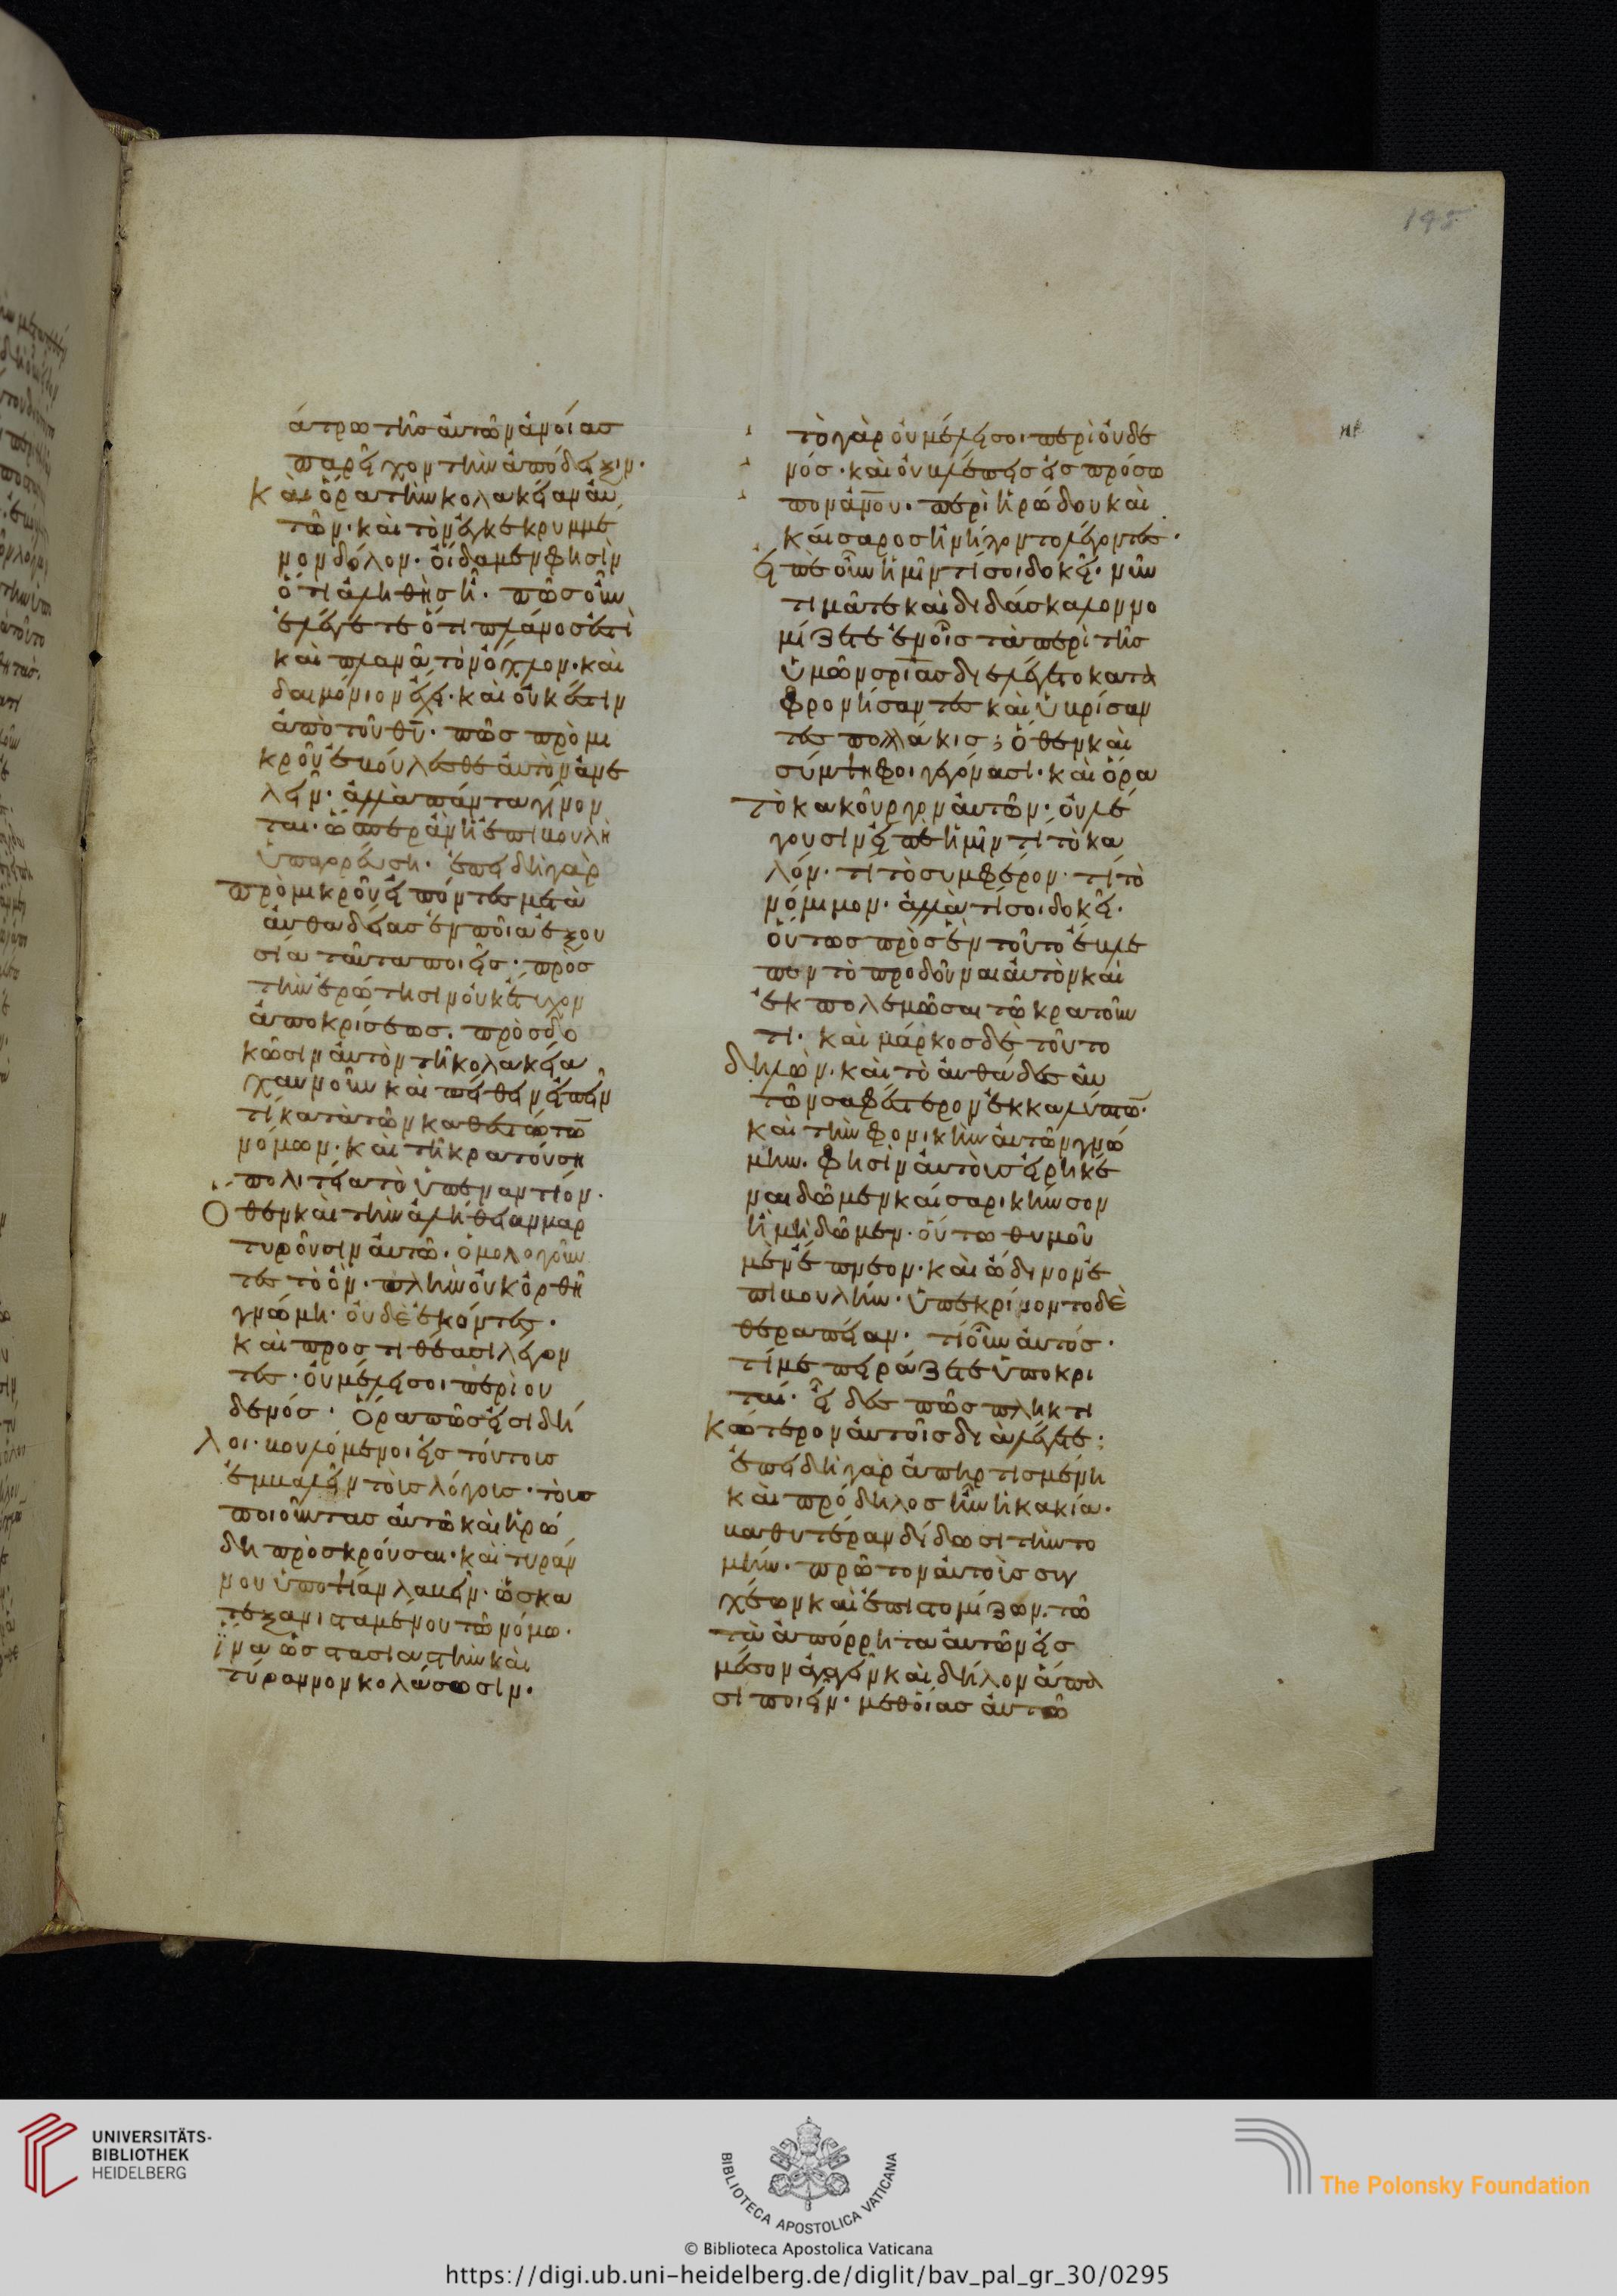 άτρω τῆς αὐτῶν ἀνοίας
παρεῖχον τὴν ἀπόδειξιν·
Καὶ ὅρα τὴν κολακείαν αὐ
τῶν· καὶ τὸν ἐγκεκρυμμέ
νον δόλον· οἴδαμεν φησὶν
ὅτι ἀληθὴς ἦ· πῶς οὖν
ἐλέγετε ὅτι πλάνος ἐστὶ
καὶ πλανᾶ τὸν ὄχλον· καὶ
δαιμόνιον ἔχει· καὶ οὐκ ἔστιν
ἀπὸ τοῦ θῦ· πῶς πρὸ μι
κροῦ ἐβούλεσθε αὐτὸν ἀνε
λεῖν· ἀλλὰ πάντα γίνον
ται· ὥσπερ ἂν ἡ ἐπιβουλὴ
ὑπαορεύση· ἐπειδὴ γὰρ
πρὸ μικροῦ εἰπόντες μετὰ
αὐθαδείας ἐν ποία ἐξου
σία ταῦτα ποιεῖς· πρὸς
τὴν ἐρώτησιν οὐκ ἔτυχον
ἀποκρίσεως· προσδο
κῶσιν αὐτὸν τῆ κολακεία
χαυνοῦν καὶ πείθειν εἰπεῖν
τί κατὰ τῶν καθεστώτω̄
νόμων· καὶ τῆ κρατούση
πολιτεία τὸ ὑπεναντίον·
Ὅθεν καὶ τὴν ἀλήθειαν μαρ
τυροῦσιν αὐτῶ· ὁμολογοῦν
τες τὸ ὄν· πλὴν οὐκ ὀρθῆ
γνώμη· οὐδὲ ἑκόντες·
Καὶ προστιθέασι λέγον
τες· οὐ μέλει σοι περὶ οὐ
δενός· Ὅρα πῶς εἰσι δῆ
λοι· βουλόμενοι εἰς τούτους
ἐμβαλεῖν τοὺς λόγους· τοὺς
ποιοῦντας αὐτῶ καὶ ἡρώ
δη προσκροῦσαι· καὶ τυράν
νου ὑποψίαν λαβεῖν· ὡς κα
τεξανισταμένου τῶ νόμω·
ἵνα ὡς στασιαστὴν καὶ
τύραννον κολάσωσιν·
τὸ γὰρ οὐ μέλει σοι περὶ οὐδε
νός· καὶ οὐ βλέπεις εἰς πρόσω
πον ἀν̄ου· περὶ ἡρώδου καὶ
καίσαρος ἠνήγοντο λέγοντες·
εἰπὲ οὖν ἡμῖν τί σοι δοκεῖ· νῦν
τιμᾶτε καὶ διδάσκαλον νο
μίζετε ἐν οἷς τὰ περὶ τῆς
ὑμῶν σρ̄ιας διελέγετο κατα
φρονήσαντες καὶ ὑβρίσαν
τες πολλάκις; ὅθεν καὶ
σύμψηφοι γεγόνασι· καὶ ὅρα
τὸ κακοῦργον αὐτῶν· οὐ λέ
γουσιν εἰπὲ ἡμῖν τί τὸ κα
λόν· τί τὸ συμφέρον· τί τὸ
νόμιμον· ἀλλὰ τί σοι δοκεῖ·
οὕτως πρὸς ἓν τοῦτο ἔβλε
πον τὸ προδοῦναι αὐτὸν καὶ
ἐκπολεμῶσαι τῶ κρατοῦν
τι· καὶ μάρκος δὲ τοῦτο
δηλῶν· καὶ τὸ αὔθαδες αὐ
τῶν σαφέστερον ἐκκαλύπτω̄·
καὶ τὴν φονικὴν αὐτῶν γνώ
μην· φησὶν αὐτοὺς εἰρηκέ
ναι δῶμεν καίσαρι κῆνσον
ἢ μὴ δῶμεν· οὕτω θυμοῦ
μὲν ἔπνεον· καὶ ὤδινον ἐ
πιβουλήν· ὑπεκρίνοντο δὲ
θεραπείαν· τί οὖν αὐτός·
τί με πειράζετε ὑποκρι
ταί· εἶδες πῶς πληκτι
κώτερον αὐτοῖς διαλέγεται·
ἐπειδὴ γὰρ ἀπηρτισμένη
καὶ πρόδηλος ἦν ἡ κακία·
βαθυτέραν δίδωσι τὴν το
μήν· πρῶτον αὐτοὺς συγ
χέων καὶ ἐπιστομίζων· τῶ
τὰ ἀπόρρητα αὐτῶν εἰς
μέσον ἀγαγεῖν καὶ δῆλον ἅπα
σι ποιεῖν· μεθοίας αὐτῶ
UNIVERSITÄTS-
BIBLIOTHEK
HEIDELBERG
BIBLIOTECA APOSTOLICA VATICANA
The Polonsky Foundation
© Biblioteca Apostolica Vaticana
https://digi.ub.uni-heidelberg.de/diglit/bav_pal_gr_30/0295